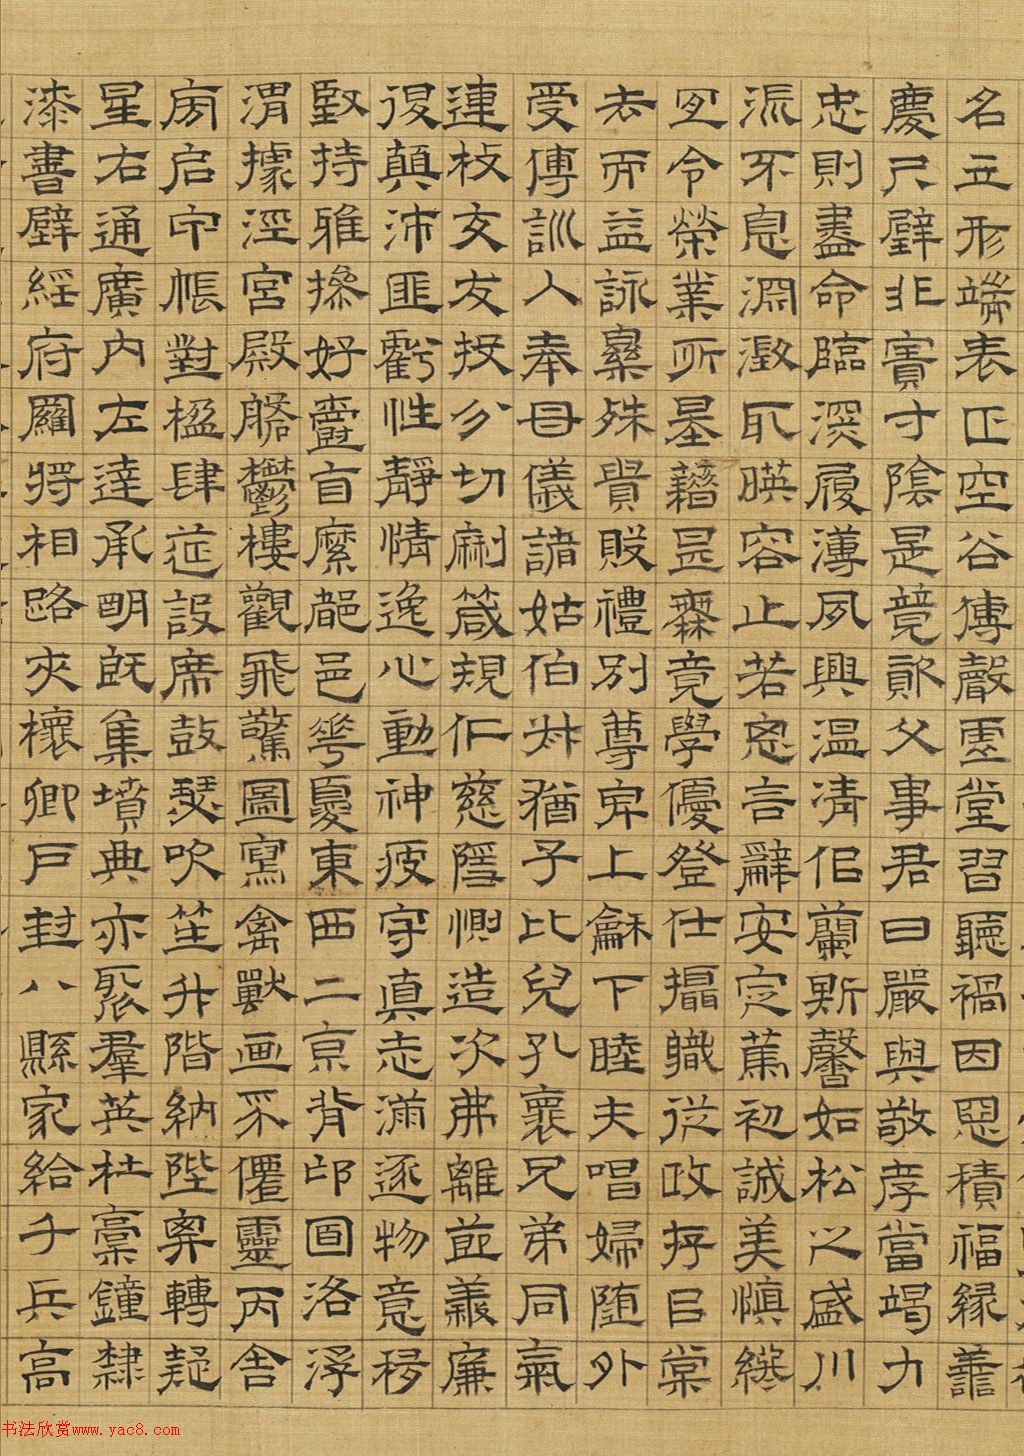 名立形端表正空谷傳聲虛堂習聽禍因惡積福緣善
慶尺璧非寶寸陰是競資父事君曰嚴與敬孝當竭力
忠則盡命臨深履薄夙興温凊佀蘭斯馨如松之盛川
流不息淵澂取暎容止若思言辭安定篤初誠美慎終
宜令榮業所基藉甚無竟學優登仕攝職從政存㠯棠
去而益詠樂殊貴賤禮別尊卑上龢下睦夫唱婦随外
受傅訓入奉母儀諸姑伯叔猶子比兒孔褱兄弟同氣
連枝交友投分切劘箴規仁慈隱惻造次弗離節義廉
退顛沛匪虧性靜情逸心動神疲守真志滿逐物意移
堅持雅操好爵自縻都邑華夏東西二京背邙面洛浮
渭據涇宮殿盤鬱樓觀飛驚圖寫禽獸画采僊靈丙舍
傍启甲帳對楹肆筵設席鼓瑟吹笙升階納陛弁轉疑
星右通廣內左達承明既集墳典亦聚羣英杜稾鐘隸
漆書壁經府羅將相路夾櫰卿戶封八縣家給千兵高
书法欣赏www.yac8.com